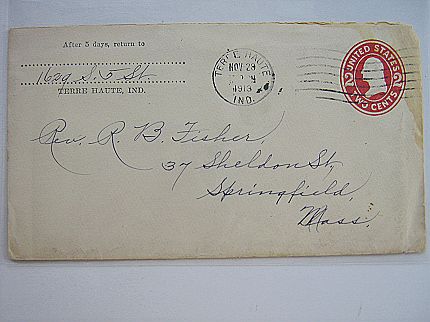 After 5 days, return to
1629 S. 5 St
TERRE HAUTE, IND.
TERRE HAUTE
NOV 28
1913
IND.
UNITED STATES
2 2
TWO CENTS
Rev. R. B. Fisher,
37 Sheldon St,
Springfield,
Mass.